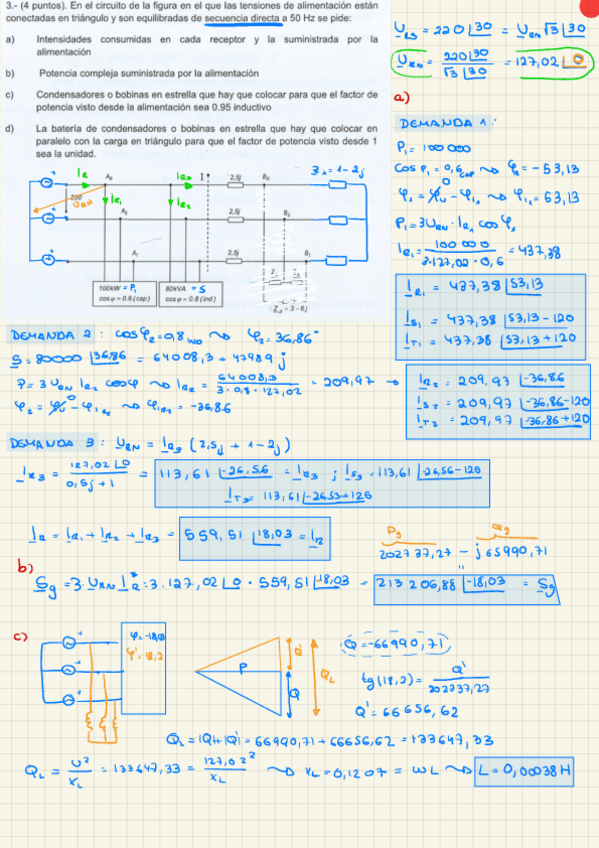 3.- (4 puntos). En el circuito de la figura en el que las tensiones de alimentación están
conectadas en triángulo y son equilibradas de secuencia directa a 50 Hz se pide:
a) Intensidades consumidas en cada receptor y la suministrada por la
alimentación
b) Potencia compleja suministrada por la alimentación
c) Condensadores o bobinas en estrella que hay que colocar para que el factor de
potencia visto desde la alimentación sea 0.95 inductivo
d) La batería de condensadores o bobinas en estrella que hay que colocar en
paralelo con la carga en triángulo para que el factor de potencia visto desde 1
sea la unidad.
U_RS = 220 ⌊30 = U_RN √3 ⌊30
U_RN = 220⌊30 / √3 ⌊30 = 127,02 ⌊0
a)
DEMANDA 1:
P₁ = 100 000
cos φ₁ = 0,6 cap ~> φ₁ = -53,13
φ₁ = φ_U - φ_I₁ ~> φ_I₁ = 53,13
P₁ = 3 U_RN · I_R₁ cos φ₁
I_R₁ = 100 000 / 3·127,02·0,6 = 437,38
I_R₁ = 437,38 ⌊53,13
I_S₁ = 437,38 ⌊53,13 - 120
I_T₁ = 437,38 ⌊53,13 + 120
I_R
I_R₃
1
2,5j
Z_λ = 1-2j
220
U_RN
I_R₁
I_R₂
2,5j
2,5j
100kW = P₁
cos φ = 0.6 (cap)
80kVA = S
cos φ = 0.8 (ind)
Z_Δ = 3-6j
DEMANDA 2: cos φ₂ = 0,8 IND ~> φ₂ = 36,86°
S = 80000 ⌊36,86 = 64008,3 + 47989 j
P = 3 U_RN I_R₂ cos φ ~> I_R₂ = 64008,3 / 3·0,8·127,02 = 209,97 →
φ₂ = φ_U - φ_IR₂ ~> φ_IR₂ = -36,86
I_R₂ = 209,97 ⌊-36,86
I_S₂ = 209,97 ⌊-36,86-120
I_T₂ = 209,97 ⌊-36,86+120
DEMANDA 3: U_RN = I_R₃ (2,5j + 1 - 2j)
I_R₃ = 127,02 ⌊0 / 0,5j + 1 = 113,61 ⌊-26,56 = I_R₃ ; I_S₃ = 113,61 ⌊-26,56-120
I_T₃ = 113,61 ⌊-26,53+120
I_R = I_R₁ + I_R₂ + I_R₃ = 559,51 ⌊18,03 = I_R
Pg Qg
202737,27 - j 65990,71
b)
Sg = 3·U_RN I_R* = 3·127,02⌊0 · 559,51 ⌊-18,03 = 213 206,88 ⌊-18,03 = Sg
c)
φ = -18,03
φ' = 18,2
P
Q'
Q
Q_L
Q = -66990,71
tg (18,2) = Q' / 202737,27
Q' = 66656,62
Q_L = |Q|+|Q'| = 66990,71 + 66656,62 = 133647,33
Q_L = U² / X_L = 133647,33 = 127,02² / X_L ~> X_L = 0,1207 = ωL ~> L = 0,00038 H